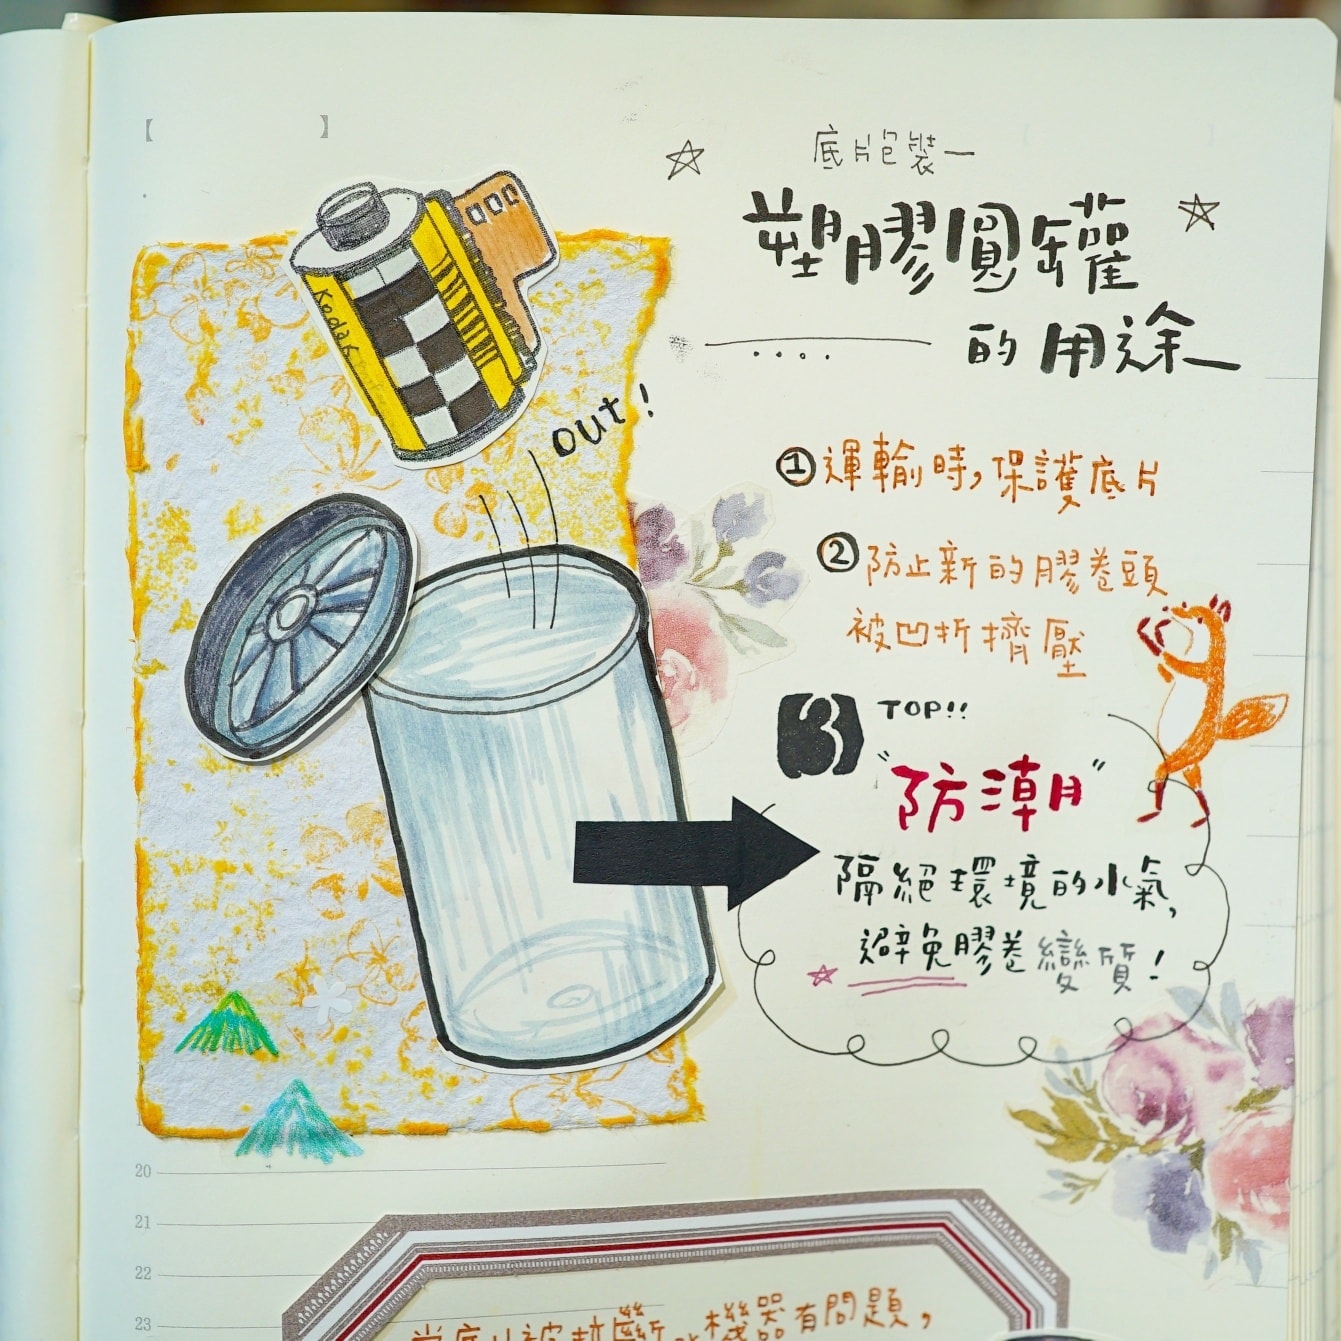 底片包裝一
塑膠圓罐
的用途
Kodak
out!
①運輸時,保護底片
②防止新的膠卷頭
被凹折擠壓
3 TOP!!
"防潮"
隔絕環境的水氣,
避免膠卷變質!
20
21
22
23
機器有問題,